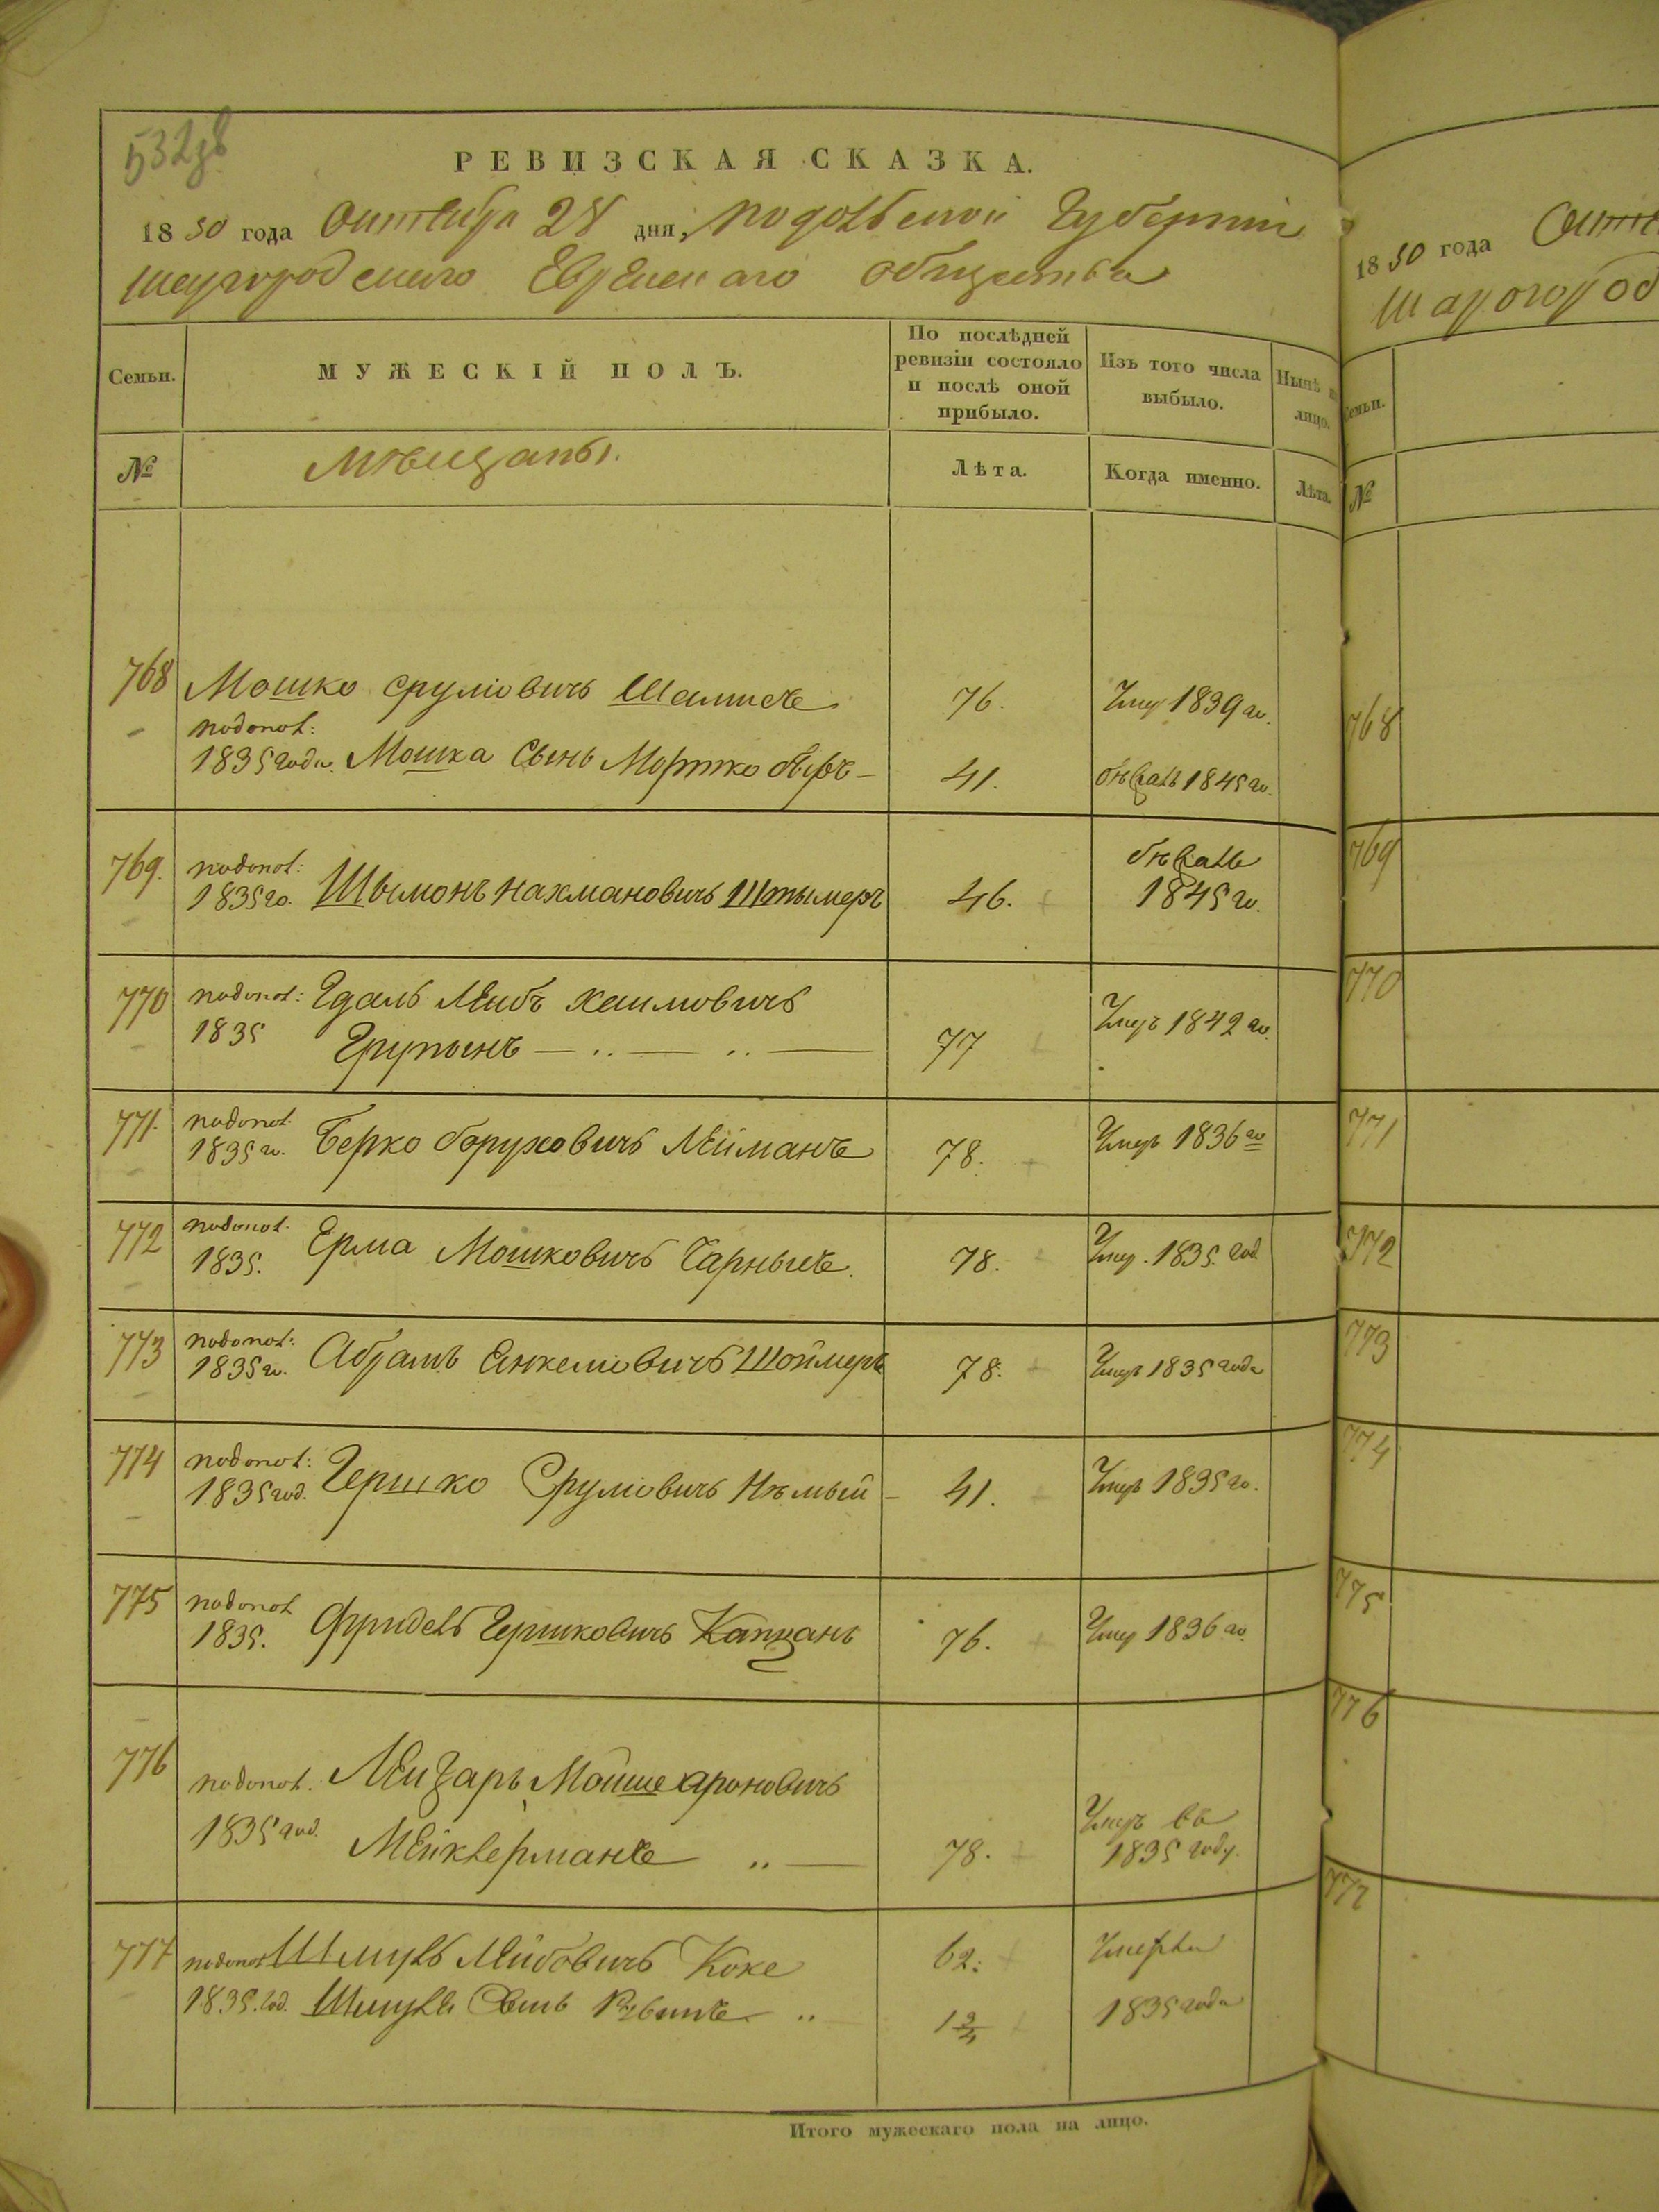 РЕВИЗСКАЯ СКАЗКА.
1850 года Октября 28 дня, Подольской Губернии
Шаргородского Еврейскаго общества
Семьи.
МУЖЕСКІЙ ПОЛЪ.
По послѣдней ревизіи состояло и послѣ оной прибыло.
Изъ того числа выбыло.
Нынѣ лицо.
№
Мѣщаны.
Лѣта.
Когда именно.
Лѣта.
768 Мошко Срулiовичъ 76. Умер 1839 го.
подопол:
1835 года. Мошка Сынъ Мортко Беръ 41. бѣжалъ 1845 го.
769. подопол: бѣжалъ
1835 го. Шымонъ Нахмановичъ Штымеръ 46. 1845 го.
770 подопол: Гдаль Лейбъ Хаимовичъ
1835 77 Умеръ 1842 го.
771. подопол.
1835 го. Берко Боруховичъ Лейманъ 78. Умеръ 1836 го
772 подопол.
1835. Ерма Мошковичъ Чарный 78. Умер. 1835. год.
773 подопол:
1835 го. Абрамъ Янкелiовичъ Шоймеръ 78. Умеръ 1835 года
774 подопол:
1835 год. Гершко Срулiовичъ Нѣмый 41. Умеръ 1835 го.
775 подопол
1835. Фридель Гершковичъ Капцанъ 76. Умер 1836 го.
776 подопол. Лейзаръ Мойше Ароновичъ
1835 год. 78. Умеръ въ 1835 году.
777 подопол Шмуль Лейбовичъ Коке 62: Умерли
1835. год. Шмуля Сынъ 1 3/4 1835 года
Итого мужескаго пола на лицо.
1850 года
Шарогород
Семьи.
№
768
769
770
771
772
773
774
775
776
777